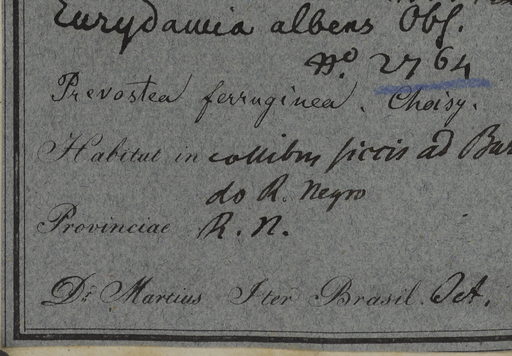 Eurydamia albens Obs.
No. 2764
Prevostea ferruginea. Choisy.
Habitat in collibus siccis ad Bar
do R. Negro
Provinciae R. N.
Dr. Martius Iter Brasil. Oct.